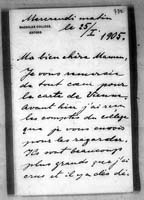 Mercredi matin
MAGDALEN COLLEGE,
OXFORD.
le 25/I 1905.
Ma bien chère Maman,
Je vous remercie
de tout cœur pour
la carte de Vienne.
Avant hier j'ai reçu
les comptes du collège
que je vous envoie
pour les regarder.
Ils sont beaucoup
plus grands que j'ai
crus et il y a des dé-